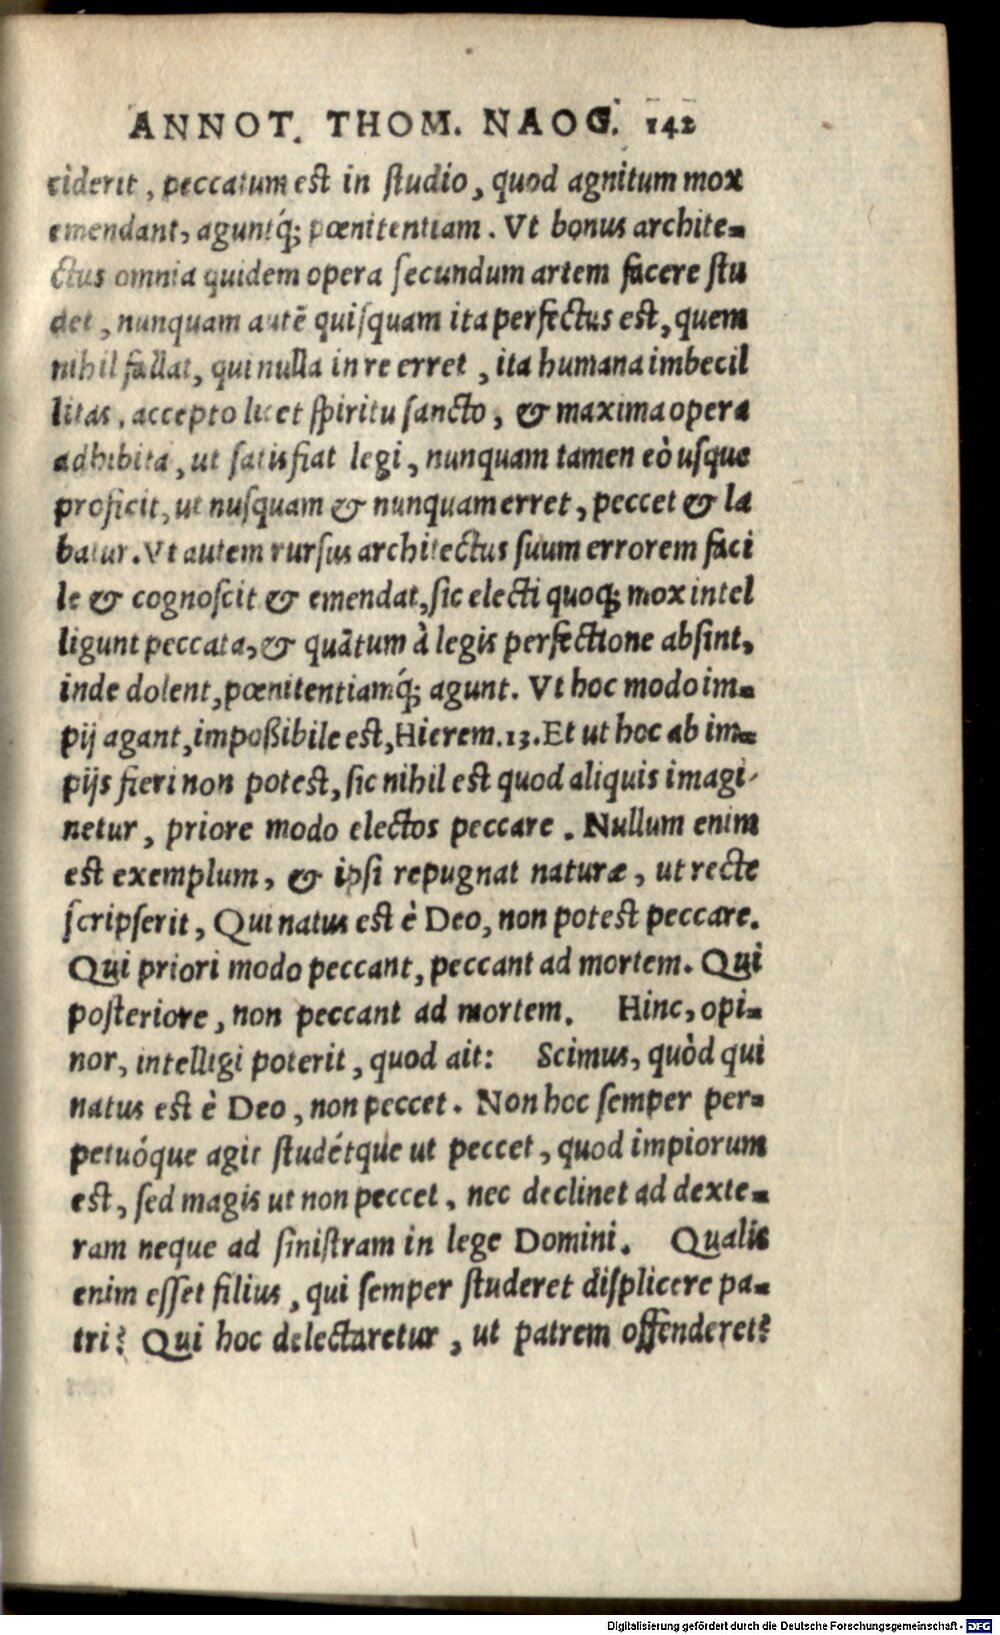 ANNOT. THOM. NAOG. 142
ciderit, peccatum est in ſtudio, quod agnitum mox
emendant, aguntq́; pœnitentiam. Vt bonus archite-
ctus omnia quidem opera ſecundum artem facere ſtu
det, nunquam autē quiſquam ita perfectus est, quem
nihil fallat, qui nulla in re erret, ita humana imbecil
litas, accepto licet ſpiritu ſancto, & maxima opera
adhibita, ut ſatisfiat legi, nunquam tamen eò usque
proficit, ut nuſquam & nunquam erret, peccet & la
batur. Vt autem rurſus architectus ſuum errorem faci
le & cognoſcit & emendat, ſic electi quoq; mox intel
ligunt peccata, & quātum à legis perfectione abſint,
inde dolent, pœnitentiamq́; agunt. Vt hoc modo im-
pij agant, impoßibile est, Hierem. 13. Et ut hoc ab im-
pijs fieri non potest, ſic nihil est quod aliquis imagi-
netur, priore modo electos peccare. Nullum enim
est exemplum, & ipſi repugnat naturæ, ut recte
ſcripſerit, Qui natus est è Deo, non potest peccare.
Qui priori modo peccant, peccant ad mortem. Qui
poſteriore, non peccant ad mortem. Hinc, opi-
nor, intelligi poterit, quod ait: Scimus, quòd qui
natus est è Deo, non peccet. Non hoc ſemper per-
petuóque agit ſtudétque ut peccet, quod impiorum
est, ſed magis ut non peccet, nec declinet ad dexte-
ram neque ad ſiniſtram in lege Domini. Qualis
enim eſſet filius, qui ſemper ſtuderet diſplicere pa-
tri? Qui hoc delectaretur, ut patrem offenderet?
Digitalisierung gefördert durch die Deutsche Forschungsgemeinschaft - DFG